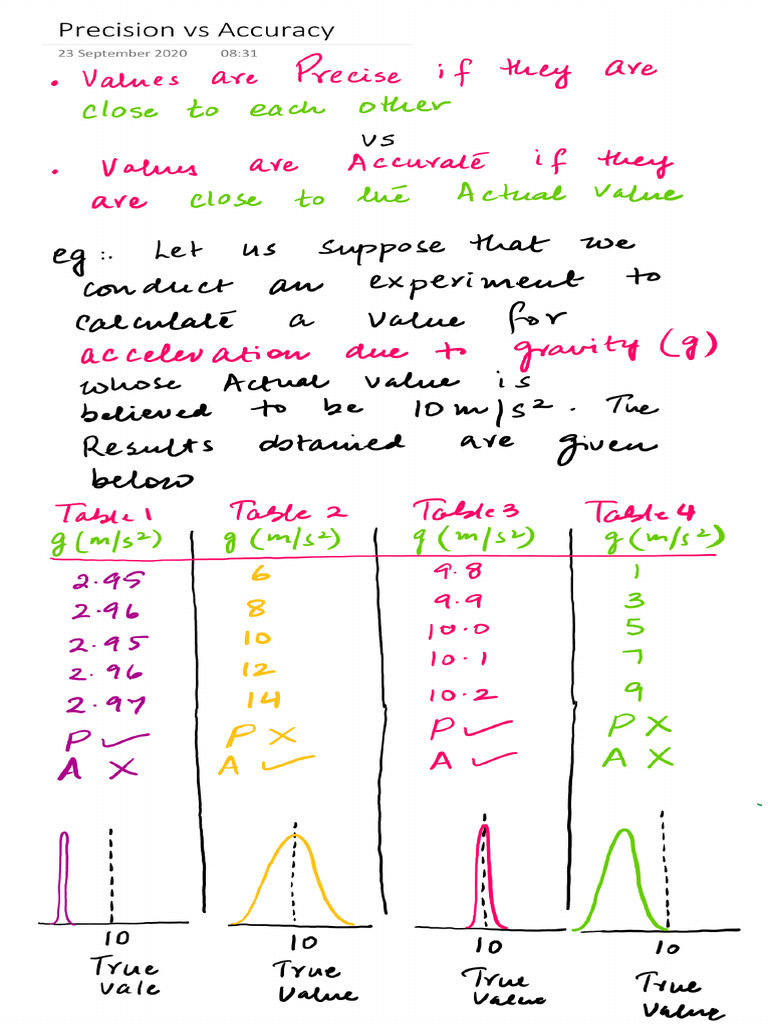 Precision vs Accuracy
23 September 2020 08:31
• Values are Precise if they are
close to each other
vs
• Values are Accurate if they
are close to the Actual value
eg:. Let us suppose that we
conduct an experiment to
calculate a value for
acceleration due to gravity (g)
whose Actual value is
believed to be 10 m/s². The
Results obtained are given
below
Table 1 Table 2 Table 3 Table 4
g (m/s²) g (m/s²) g (m/s²) g (m/s²)
2.95 6 9.8 1
2.96 8 9.9 3
2.95 10 10.0 5
2.96 12 10.1 7
2.97 14 10.2 9
P ✓ P ✗ P ✓ P ✗
A ✗ A ✓ A ✓ A ✗
10 10 10 10
True True True True
vale value value value